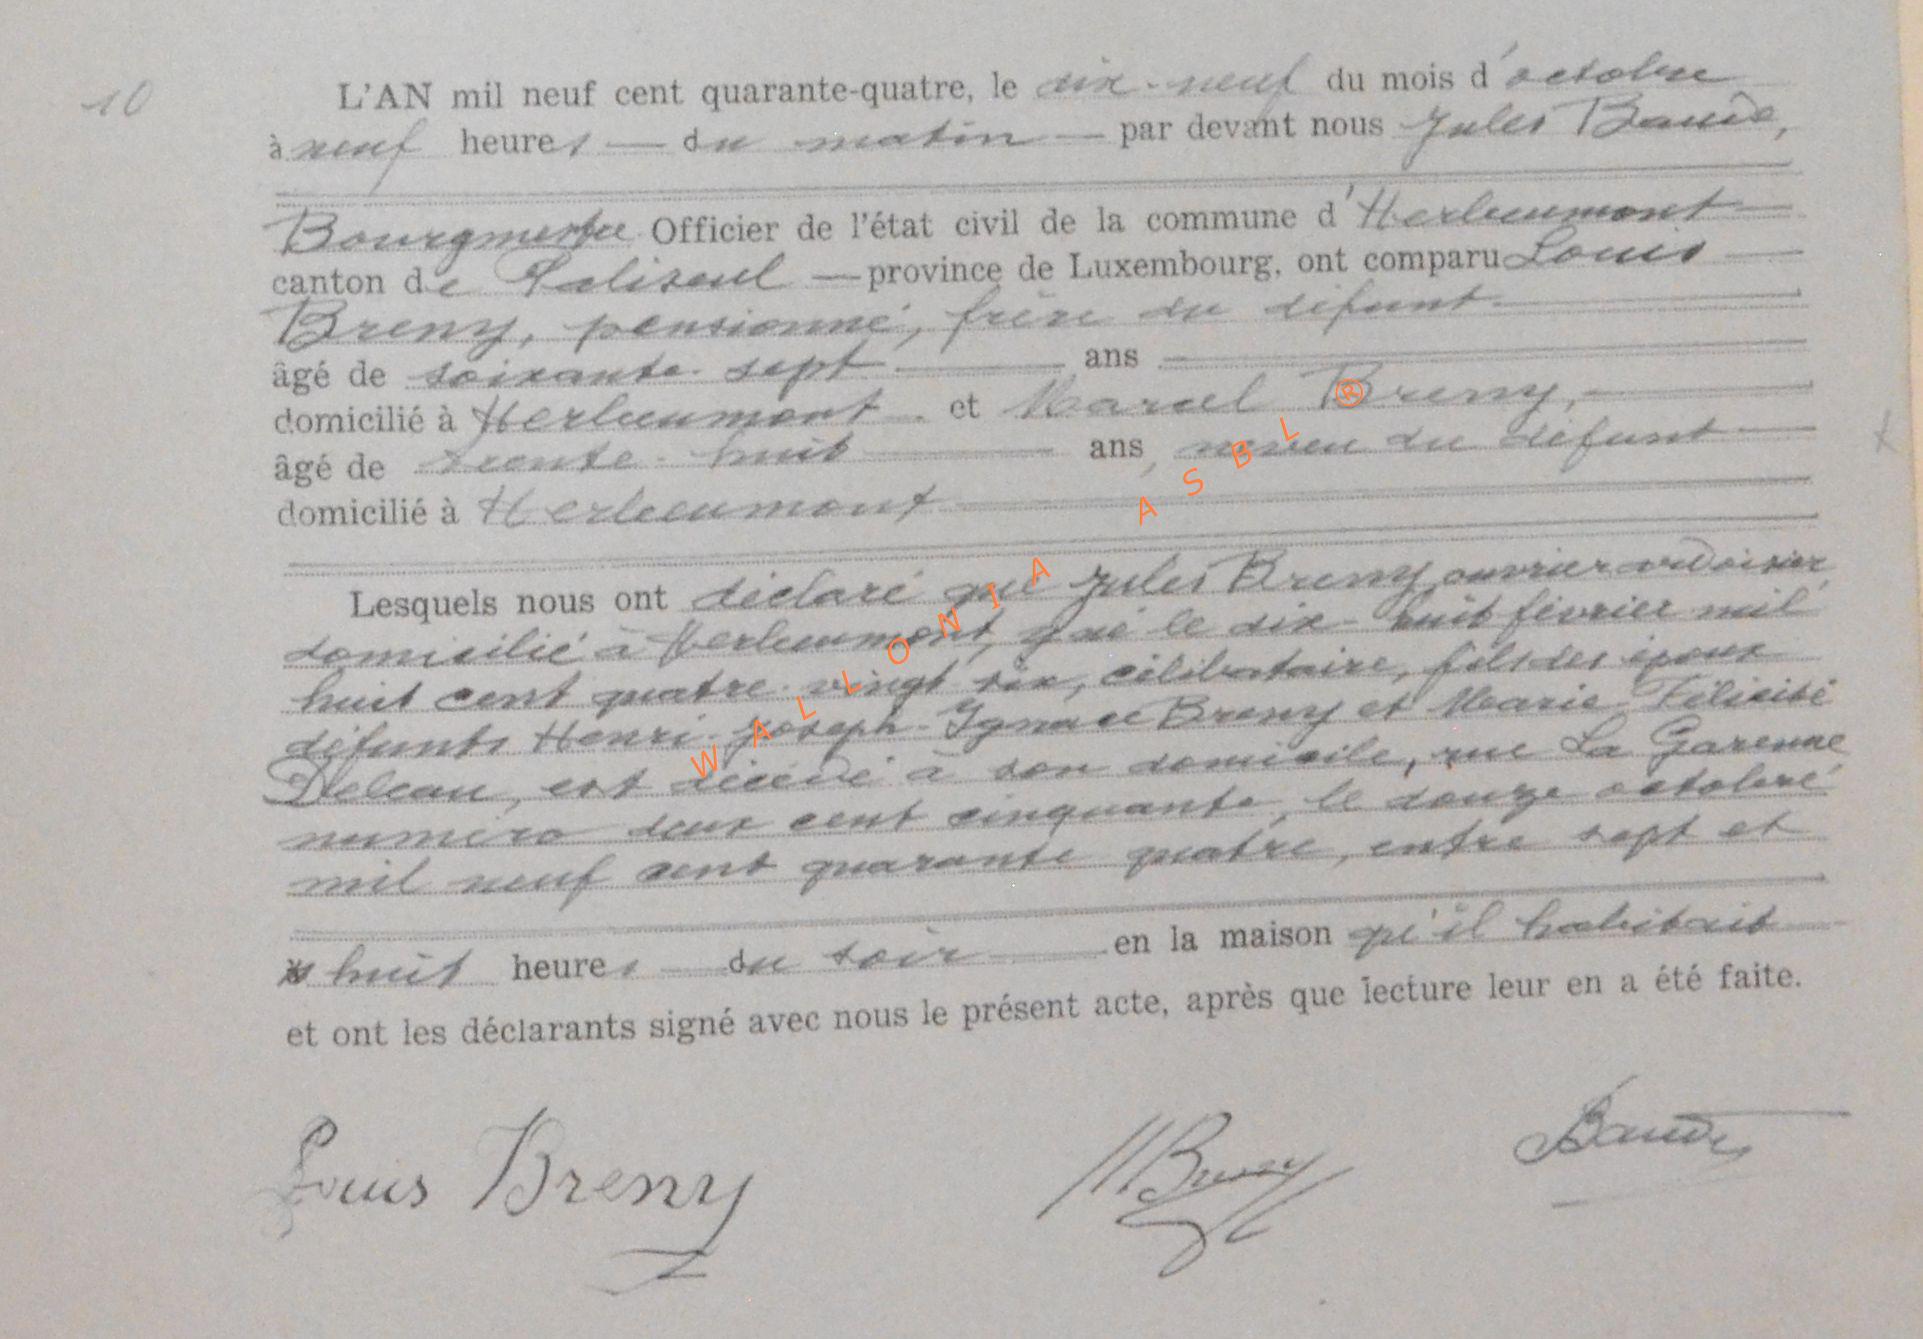 10
L'AN mil neuf cent quarante-quatre, le dix-neuf du mois d'octobre
à neuf heures — du matin — par devant nous Jules Baude,
Bourgmestre Officier de l'état civil de la commune d'Herbeumont —
canton de Paliseul — province de Luxembourg, ont comparu Louis —
Breny, pensionné, frère du défunt —
âgé de soixante-sept — ans —
domicilié à Herbeumont — et Marcel Breny, —
âgé de trente-huit — ans, neveu du défunt —
domicilié à Herbeumont —
Lesquels nous ont déclaré que Jules Breny, ouvrier ardoisier,
domicilié à Herbeumont, y né le dix-huit février mil
huit cent quatre-vingt six, célibataire, fils des époux
défunts Henri-Joseph-Ignace Breny et Marie Félicité
Deleau, est décédé à son domicile, rue La Garenne
numéro deux cent cinquante, le douze octobre
mil neuf cent quarante quatre, entre sept et
huit heures — du soir — en la maison qu'il habitait —
et ont les déclarants signé avec nous le présent acte, après que lecture leur en a été faite.
Louis Breny MBreny Baude
WALLONIA ASBL ®